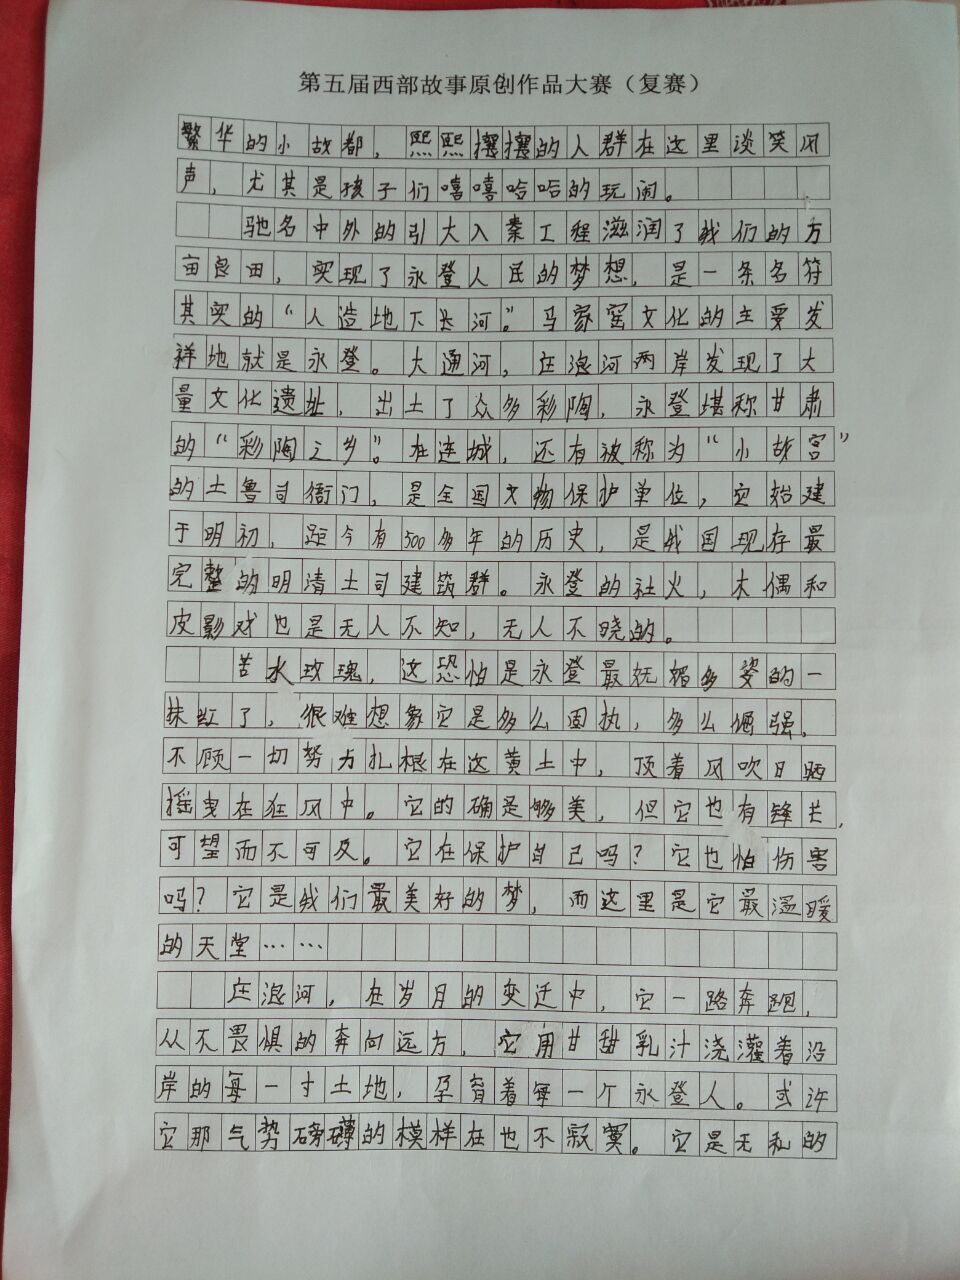 第五届西部故事原创作品大赛（复赛）
繁华的小故都，熙熙攘攘的人群在这里谈笑风
声，尤其是孩子们嘻嘻哈哈的玩闹。
驰名中外的引大入秦工程滋润了我们的万
亩良田，实现了永登人民的梦想，是一条名符
其实的“人造地下长河”。马家窑文化的主要发
祥地就是永登。大通河，庄浪河两岸发现了大
量文化遗址，出土了众多彩陶，永登堪称甘肃
的“彩陶之乡”。在连城，还有被称为“小故宫”
的土鲁司衙门，是全国文物保护单位，它始建
于明初，距今有500多年的历史，是我国现存最
完整的明清土司建筑群。永登的社火，木偶和
皮影戏也是无人不知，无人不晓的。
苦水玫瑰，这恐怕是永登最妩媚多姿的一
抹红了，很难想象它是多么固执，多么倔强，
不顾一切努力扎根在这黄土中，顶着风吹日晒
摇曳在狂风中。它的确是够美，但它也有锋芒，
可望而不可及。它在保护自己吗？它也怕伤害
吗？它是我们最美好的梦，而这里是它最温暖
的天堂……
庄浪河，在岁月的变迁中，它一路奔跑，
从不畏惧的奔向远方，它用甘甜乳汁浇灌着沿
岸的每一寸土地，孕育着每一个永登人。或许
它那气势磅礴的模样在也不寂寞。它是无私的